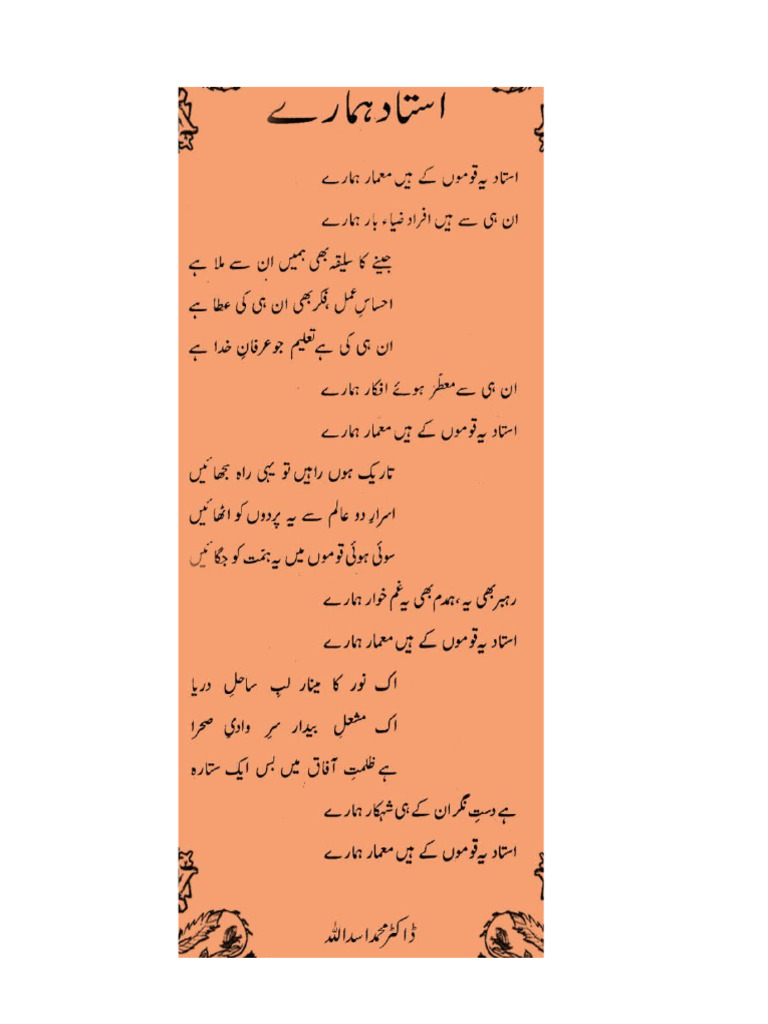 استاد ہمارے
استاد یہ قوموں کے ہیں معمار ہمارے
ان ہی سے ہیں افراد ضیاء بار ہمارے
جینے کا سلیقہ بھی ہمیں ان سے ملا ہے
احساسِ عمل ، فکر بھی ان ہی کی عطا ہے
ان ہی کی ہے تعلیم جو عرفانِ خدا ہے
ان ہی سے معطّر ہوئے افکار ہمارے
استاد یہ قوموں کے ہیں معمار ہمارے
تاریک ہوں راہیں تو یہی راہ سجھائیں
اسرارِ دو عالم سے یہ پردوں کو اٹھائیں
سوئی ہوئی قوموں میں یہ ہمّت کو جگائیں
رہبر بھی یہ ، ہمدم بھی یہ غم خوار ہمارے
استاد یہ قوموں کے ہیں معمار ہمارے
اک نور کا مینار لبِ ساحلِ دریا
اک مشعلِ بیدار سرِ وادیِ صحرا
ہے ظلمتِ آفاق میں بس ایک ستارہ
ہے دستِ نگر ان کے ہی شہکار ہمارے
استاد یہ قوموں کے ہیں معمار ہمارے
ڈاکٹر محمد اسد اللہ